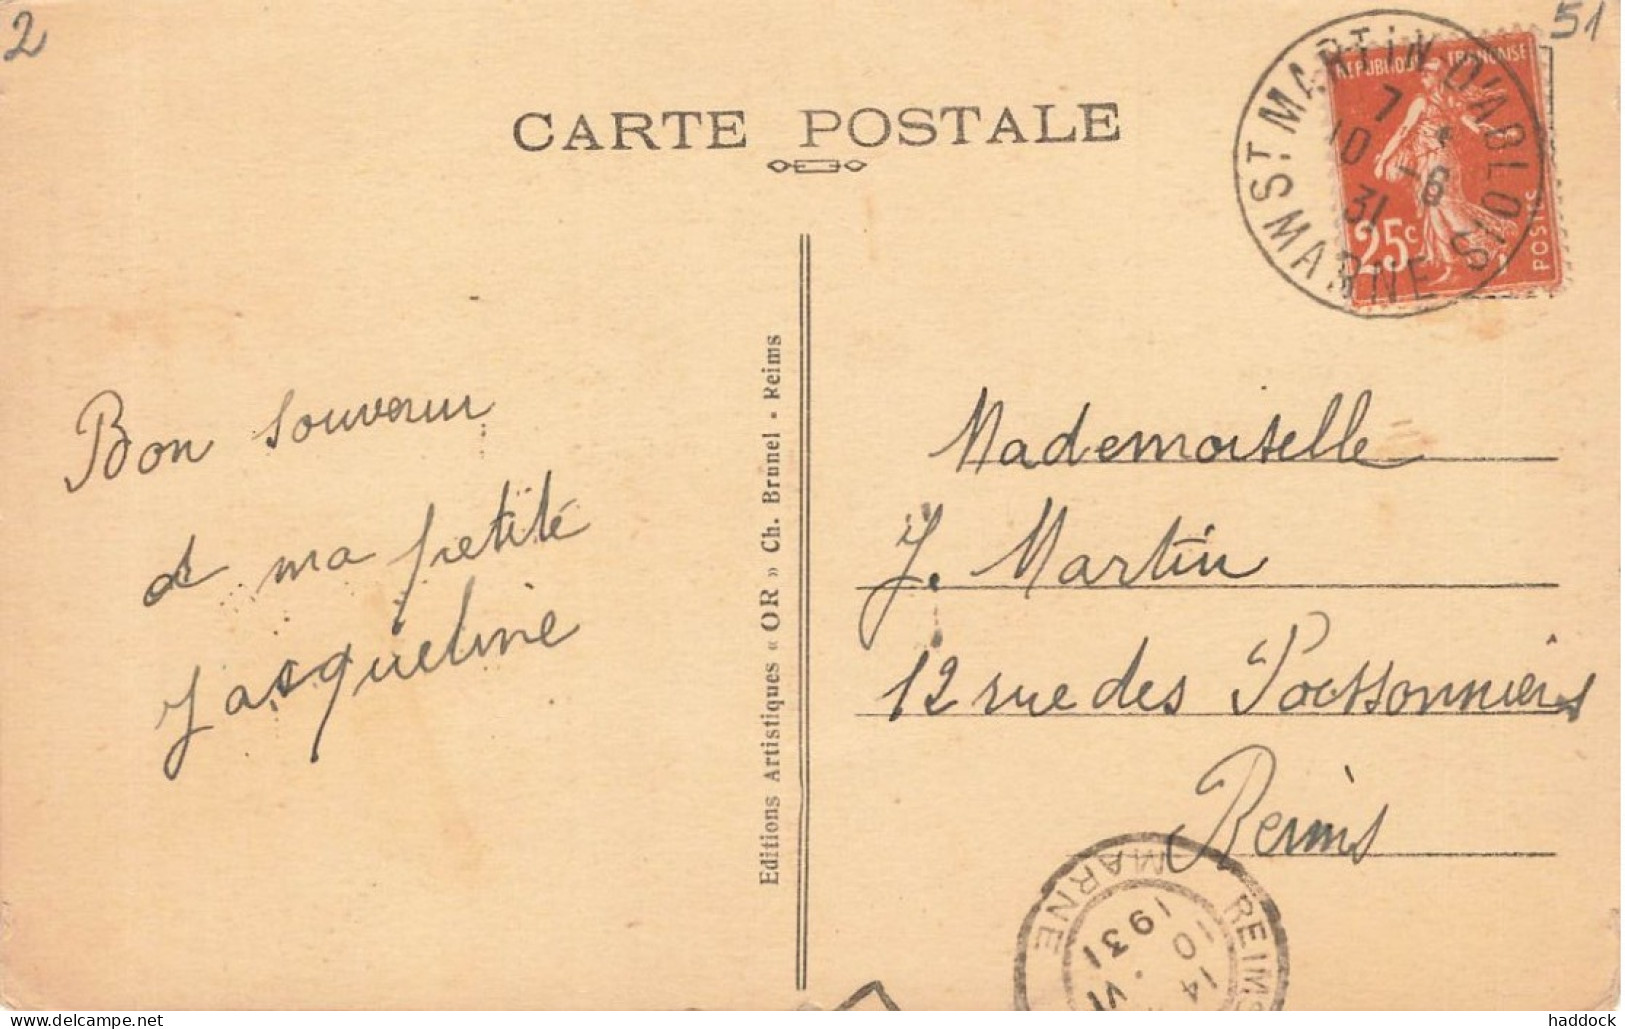 2
51
CARTE POSTALE
RÉPUBLIQUE FRANÇAISE
25c
POSTES
ST MARTIN D'ABLOIS
7
10 -6
31
MARNE
Bon souvenir
de ma petite
Jacqueline
Editions Artistiques « OR » Ch. Brunel - Reims
Mademoiselle
J. Martin
12 rue des Poissonniers
Reims
REIMS
MARNE
14
10 . VI
1931
haddock